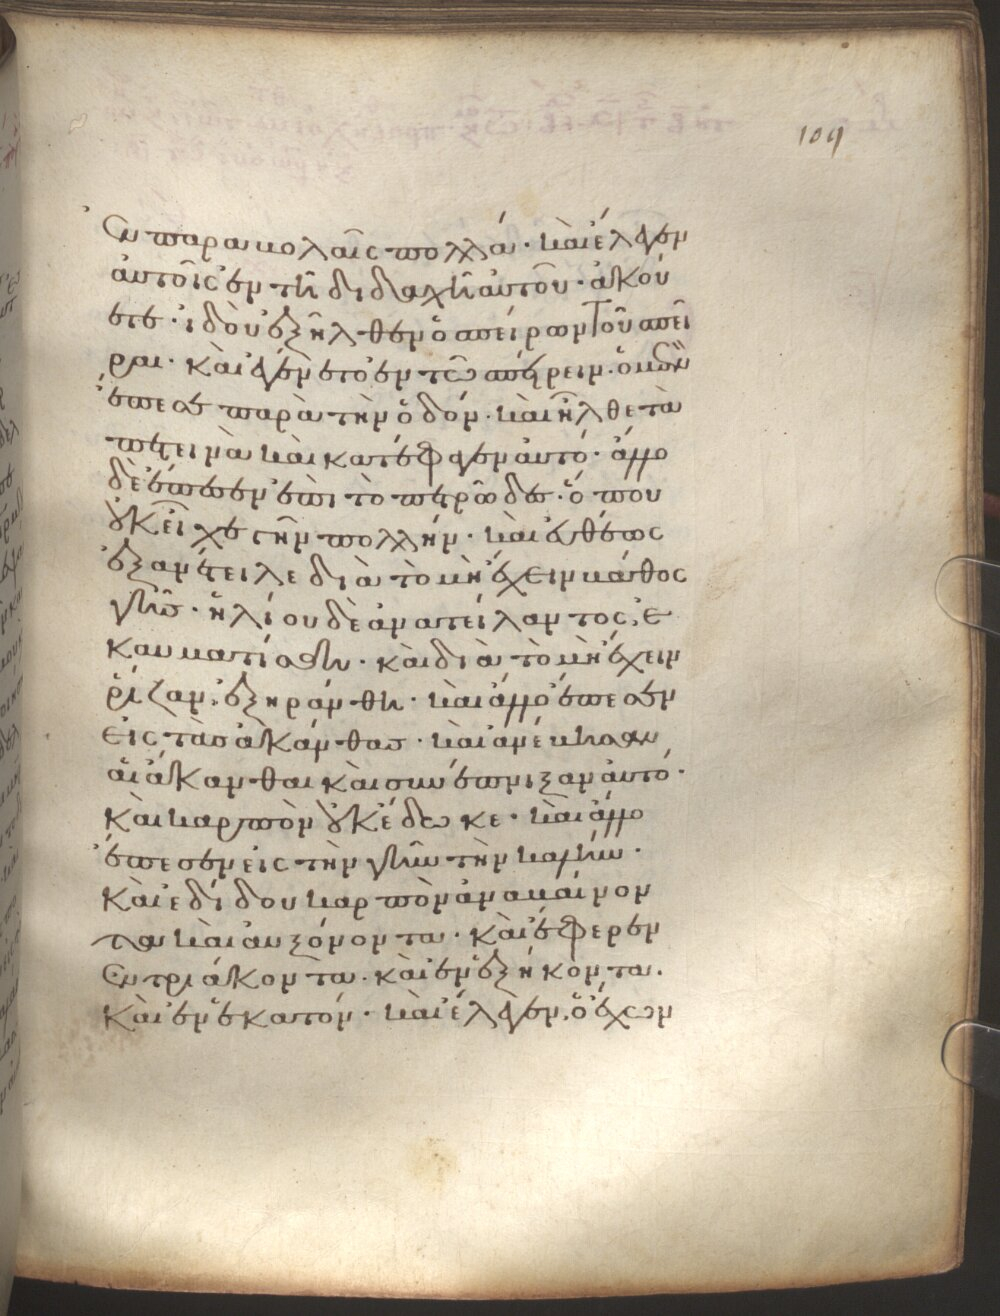 109
ἐν παραβολαῖς πολλά· καὶ ἔλεγεν
αὐτοῖς ἐν τῇ διδαχῇ αὐτοῦ· ἀκού
ετε· ἰδοὺ ἐξῆλθεν ὁ σπείρων τοῦ σπεῖ
ραι· καὶ ἐγένετο ἐν τῷ σπείρειν· ὃ μὲν
ἔπεσε παρὰ τὴν ὁδόν· καὶ ἦλθε τὰ
πετεινὰ καὶ κατέφαγεν αὐτό· ἄλλο
δὲ ἔπεσεν ἐπὶ τὸ πετρῶδες· ὅπου
οὐκ εἶχε γῆν πολλήν· καὶ εὐθέως
ἐξανέτειλε διὰ τὸ μὴ ἔχειν βάθος
γῆς· ἡλίου δὲ ἀνατείλαντος, ἐ
καυματίσθη· καὶ διὰ τὸ μὴ ἔχειν
ῥίζαν, ἐξηράνθη· καὶ ἄλλο ἔπεσεν
εἰς τὰς ἀκάνθας· καὶ ἀνέβησαν
αἱ ἄκανθαι καὶ συνέπνιξαν αὐτό·
καὶ καρπὸν οὐκ ἔδωκε· καὶ ἄλλο
ἔπεσεν εἰς τὴν γῆν τὴν καλήν·
καὶ ἐδίδου καρπὸν ἀναβαίνον
τα καὶ αὐξάνοντα· καὶ ἔφερεν
ἐν τριάκοντα· καὶ ἐν ἑξήκοντα·
καὶ ἐν ἑκατόν· καὶ ἔλεγεν, ὁ ἔχων